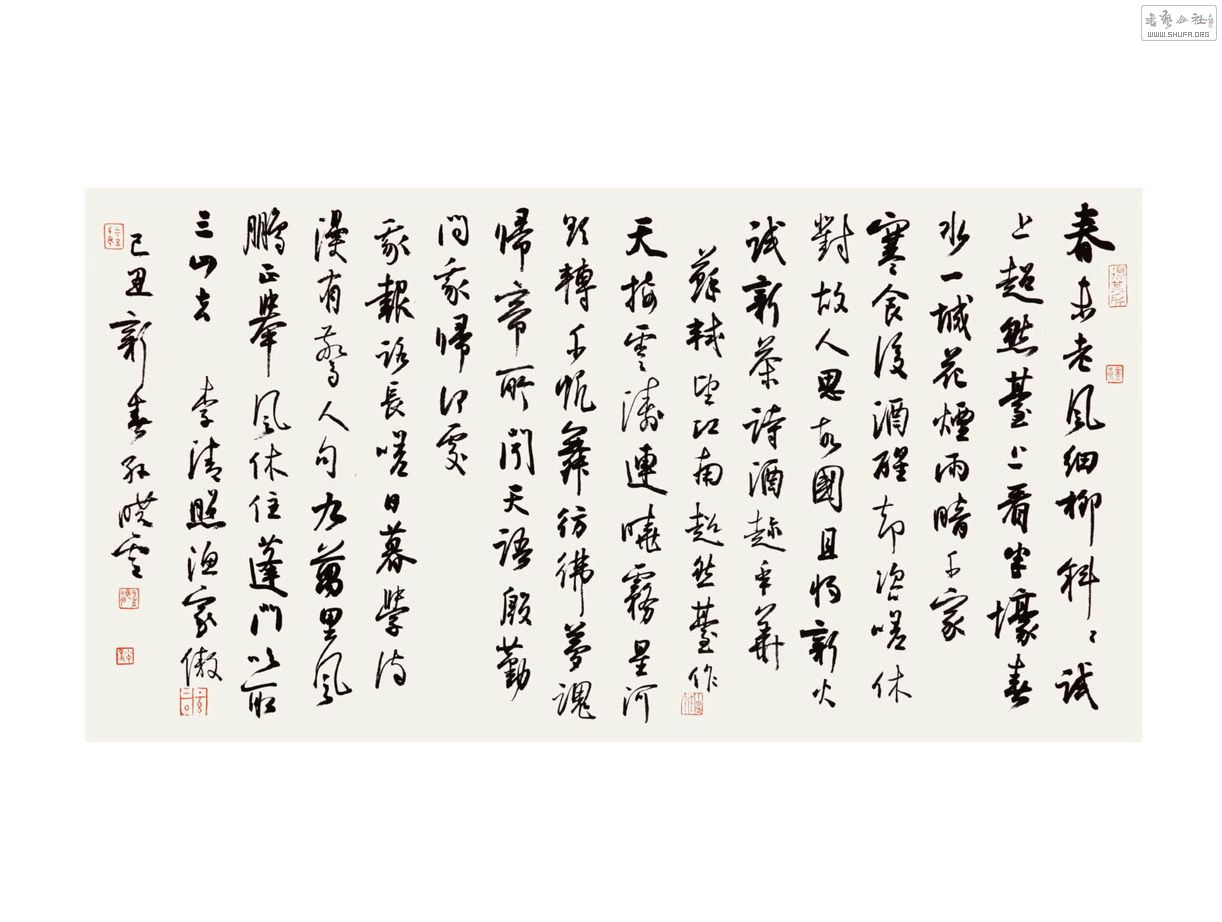 春未老風細柳斜〻試
上超然臺上看半壕春
水一城花煙雨暗千家
寒食後酒醒却咨嗟休
對故人思故國且將新火
試新茶詩酒趁年華
蘇軾望江南超然臺作
天接雲濤連曉霧星河
欲轉千帆舞彷彿夢魂
歸帝所聞天語殷勤
問我歸何處
我報路長嗟日暮學詩
漫有驚人句九萬里風
鵬正舉風休住蓬舟吹取
三山去 李清照漁家傲
己丑新春孫曉雲
WWW.SHUFA.ORG